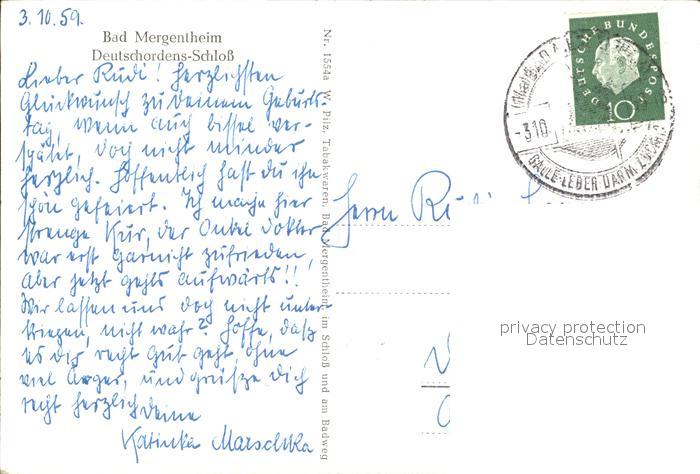 3.10.59.
Bad Mergentheim
Deutschordens-Schloß
Lieber Rudi! Herzlichsten
Glückwunsch zu Deinem Geburts-
tag, wenn auch bissel ver-
spätet, doch nicht minder
herzlich. Hoffentlich hast Du ihn
schön gefeiert. Ich mache hier
strenge Kur, der Onkel Doktor
war erst garnicht zufrieden,
aber jetzt gehts aufwärts!!
Wir lassen uns doch nicht unter-
kriegen, nicht wahr? Hoffe, dasz
es dir recht gut geht, ohne
viel Ärger, und grüsze Dich
recht herzlich Deine
Katinka Marschka
Nr. 1554a W. Pilz, Tabakwaren, Bad Mergentheim, im Schloß und am Badweg
Herrn Rudi
DEUTSCHE BUNDESPOST
10
-3.10
GALLE-LEBER-DARM
privacy protection
Datenschutz